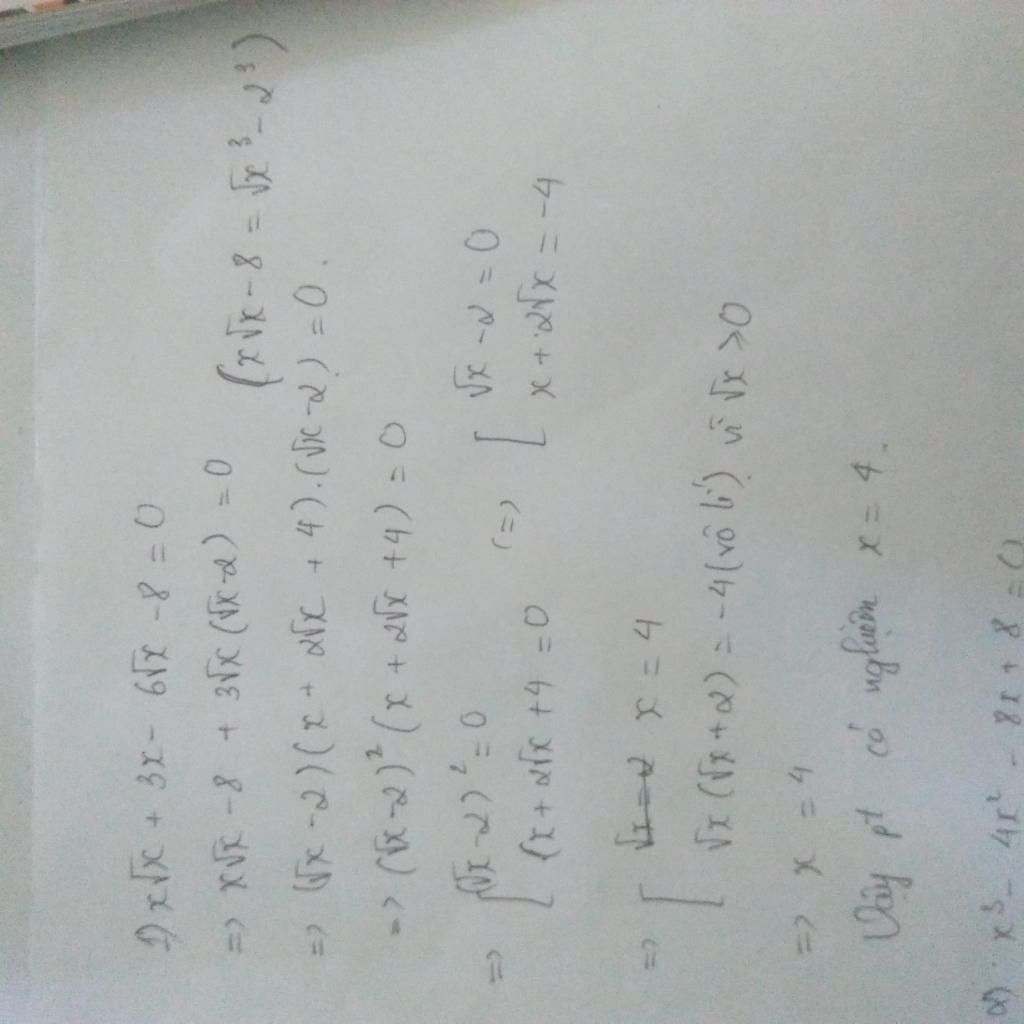 1) x√x + 3x - 6√x - 8 = 0
=> x√x - 8 + 3√x(√x-2) = 0 (x√x - 8 = √x³ - 2³)
=> (√x - 2)(x + 2√x + 4).(√x - 2) = 0.
=> (√x - 2)² (x + 2√x + 4) = 0
=> [ (√x - 2)² = 0 (=) [ √x - 2 = 0
(x + 2√x + 4 = 0 x + 2√x = -4
=> [ x = 4
√x (√x + 2) = -4 (vô lí) vì √x ≥ 0
=> x = 4
Vậy pt có nghiệm x = 4.
2) x³ - 4x² - 8x + 8 = 0